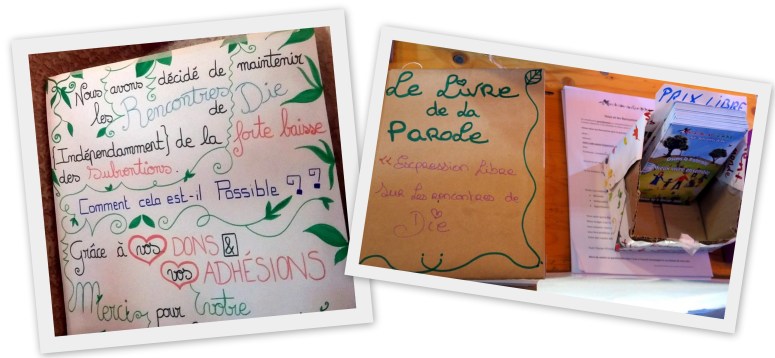 Nous avons décidé de maintenir
les Rencontres de Die
(Indépendamment) de la forte baisse
des Subventions.
Comment cela est-il Possible ??
Grâce à vos DONS &
vos ADHÉSIONS
Merci pour Votre
Le Livre
de la
Parole
"Expression Libre
sur les rencontres de
Die
PRIX LIBRE